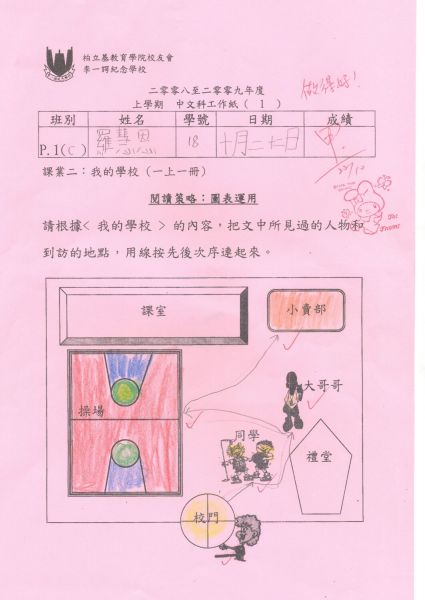 柏立基教育學院校友會
李一諤紀念學校
二零零八至二零零九年度
上學期 中文科工作紙( 1 )
做得好!
班別 姓名 學號 日期 成績
P.1(C) 羅慧恩 18 十月二十七日 甲
22/10
課業二:我的學校(一上一冊)
閱讀策略:圖表運用
請根據< 我的學校 > 的內容,把文中所見過的人物和
到訪的地點,用線按先後次序連起來。
課室
小賣部
大哥哥
操場
同學
禮堂
校門